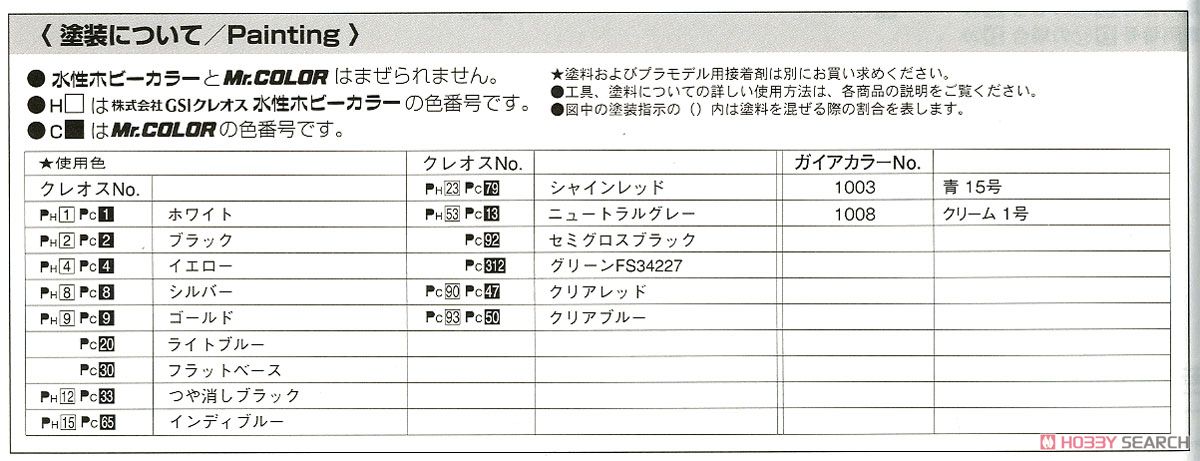 〈 塗装について／Painting 〉
● 水性ホビーカラーとMr.COLORはまぜられません。
● H□は株式会社GSIクレオス 水性ホビーカラーの色番号です。
● C■はMr.COLORの色番号です。
★塗料およびプラモデル用接着剤は別にお買い求めください。
●工具、塗料についての詳しい使用方法は、各商品の説明をご覧ください。
●図中の塗装指示の（）内は塗料を混ぜる際の割合を表します。
★使用色
クレオスNo.
PH1 PC1 ホワイト
PH2 PC2 ブラック
PH4 PC4 イエロー
PH8 PC8 シルバー
PH9 PC9 ゴールド
PC20 ライトブルー
PC30 フラットベース
PH12 PC33 つや消しブラック
PH15 PC65 インディブルー
クレオスNo.
PH23 PC79 シャインレッド
PH53 PC13 ニュートラルグレー
PC92 セミグロスブラック
PC312 グリーンFS34227
PC90 PC47 クリアレッド
PC93 PC50 クリアブルー
ガイアカラーNo.
1003 青 15号
1008 クリーム 1号
HOBBY SEARCH